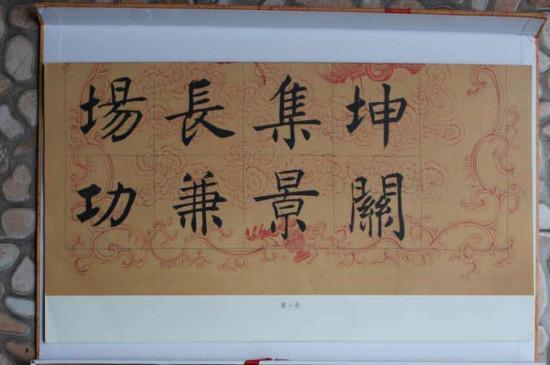 坤關
集景
長兼
場功
第一頁